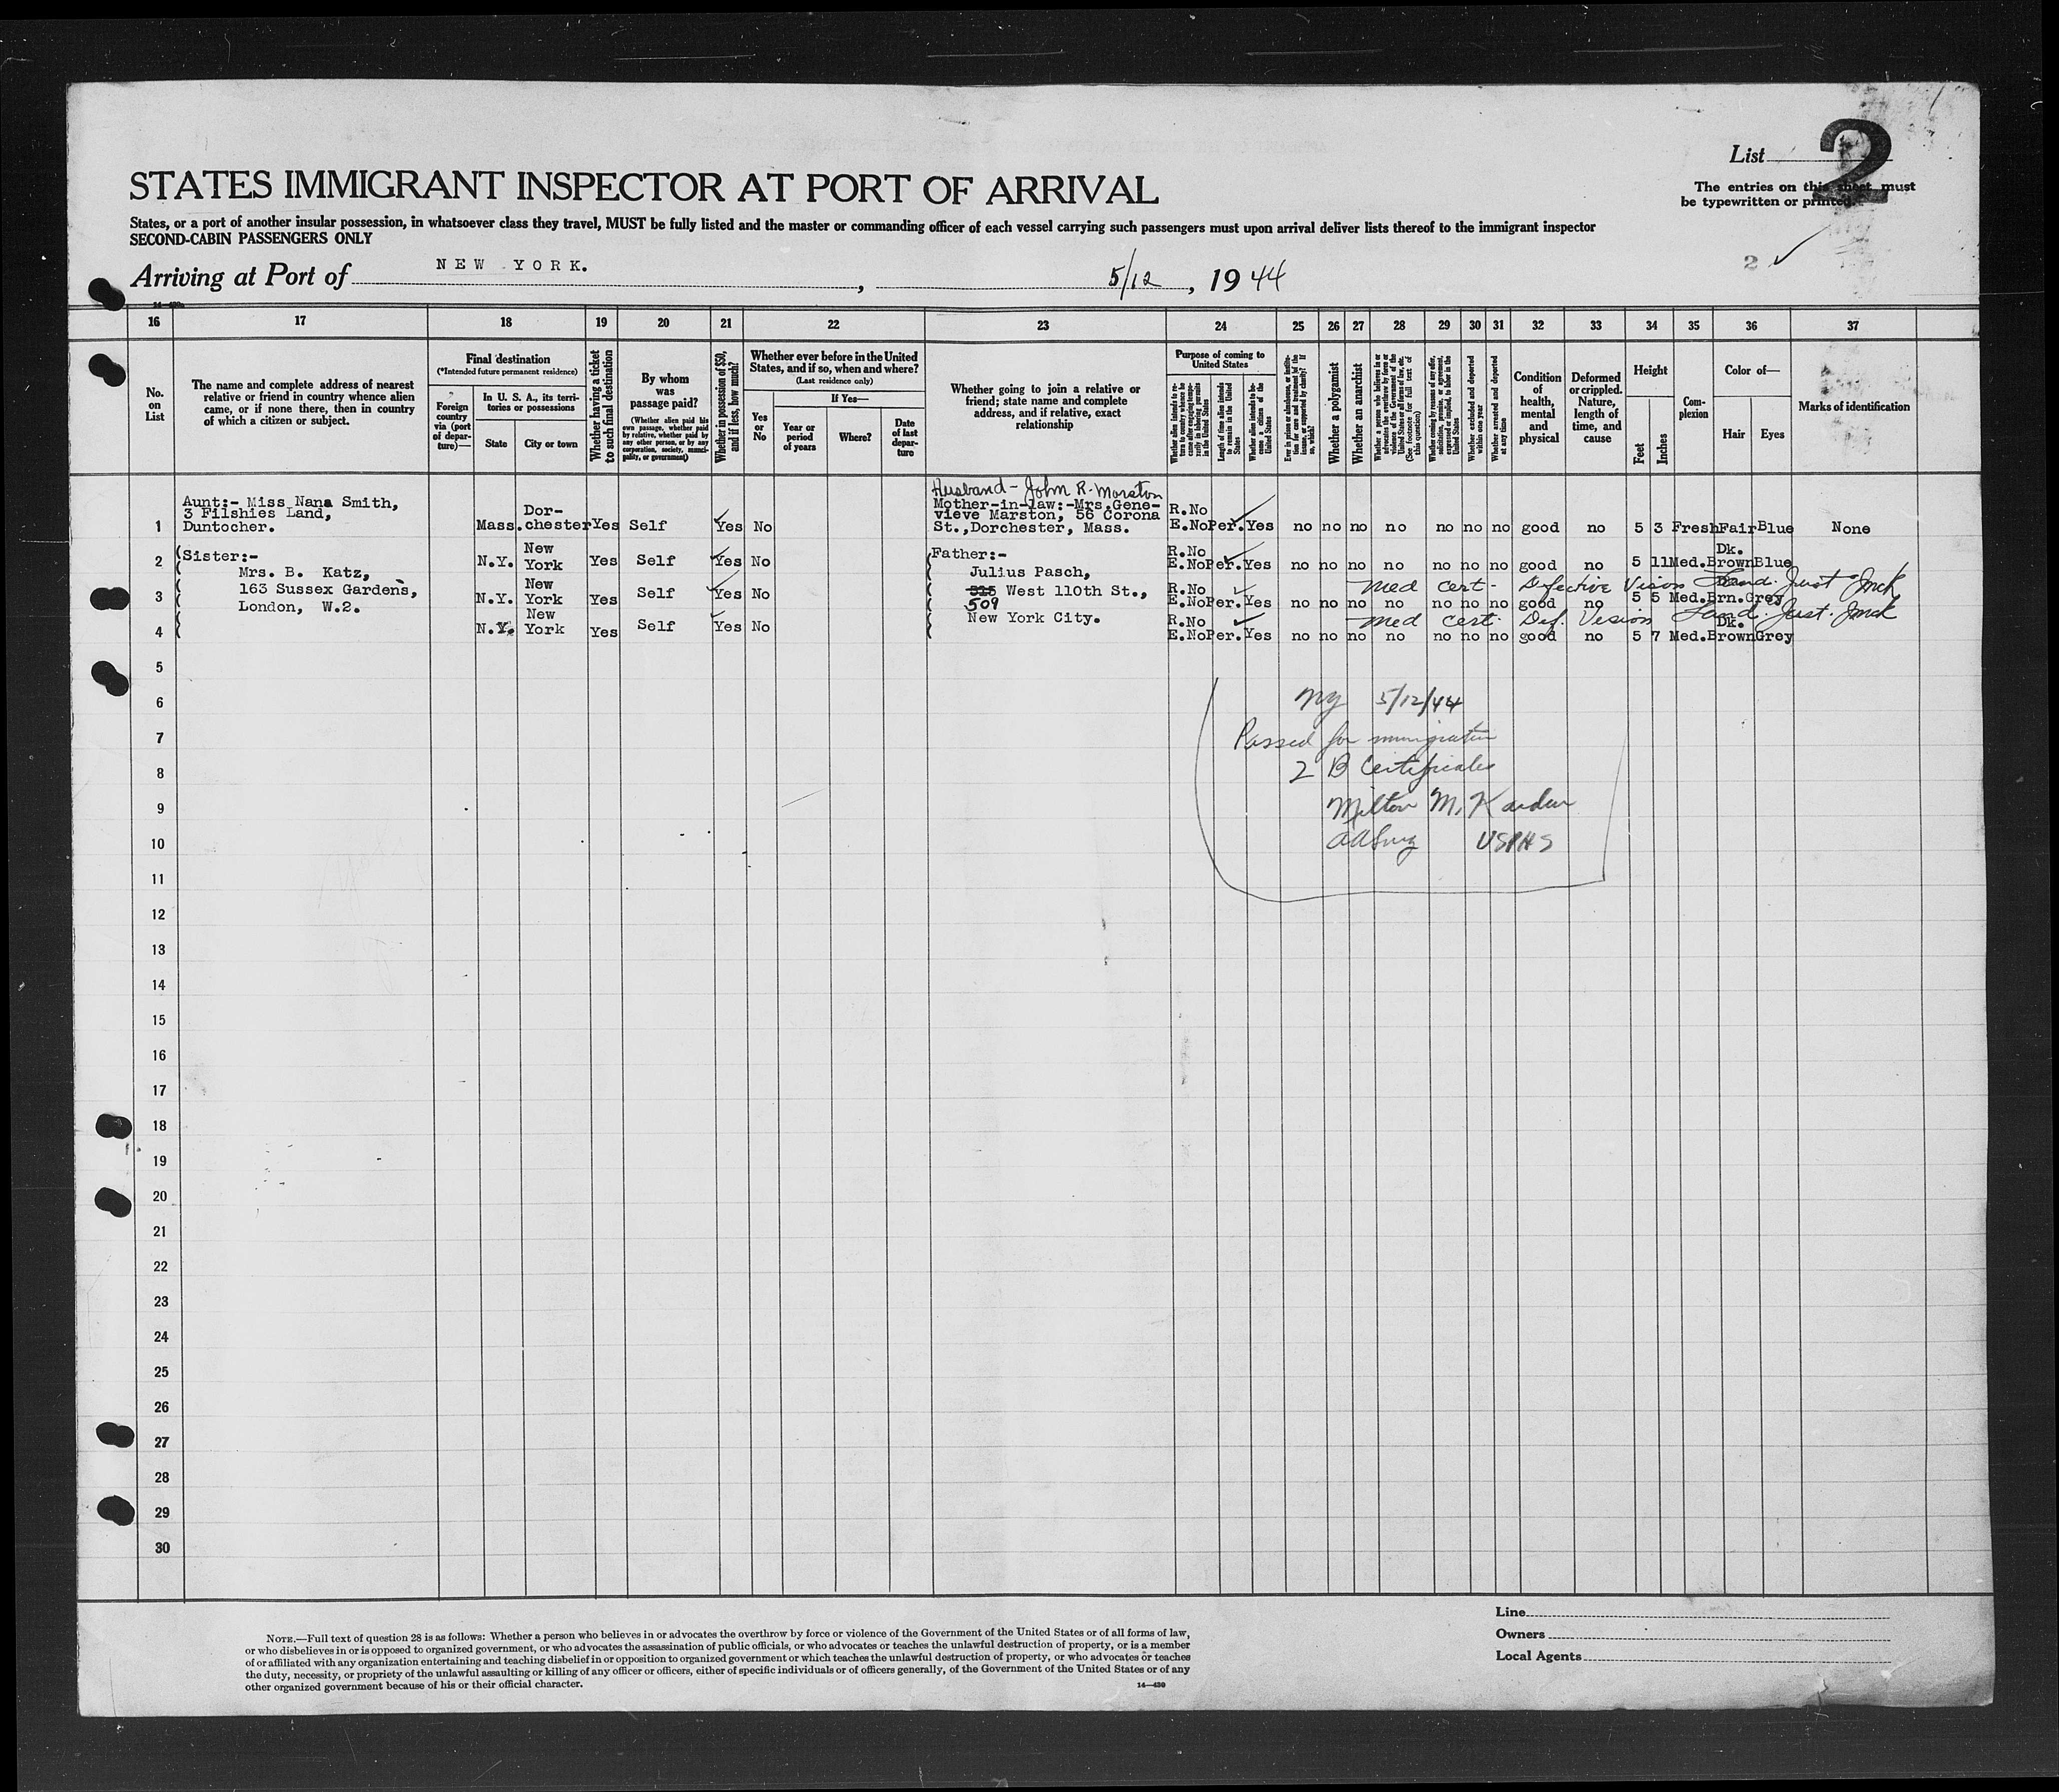 List 2
STATES IMMIGRANT INSPECTOR AT PORT OF ARRIVAL
The entries on this sheet must
be typewritten or printed.
States, or a port of another insular possession, in whatsoever class they travel, MUST be fully listed and the master or commanding officer of each vessel carrying such passengers must upon arrival deliver lists thereof to the immigrant inspector
SECOND-CABIN PASSENGERS ONLY
2
Arriving at Port of NEW YORK. , 5/12 , 1944
16 17 18 19 20 21 22 23 24 25 26 27 28 29 30 31 32 33 34 35 36 37
No.
on
List
The name and complete address of nearest
relative or friend in country whence alien
came, or if none there, then in country
of which a citizen or subject.
Final destination
(*Intended future permanent residence)
Foreign
country
via (port
of depar-
ture)—
In U. S. A., its terri-
tories or possessions
State
City or town
Whether having a ticket
to such final destination
By whom
was
passage paid?
(Whether alien paid his
own passage, whether paid
by relative, whether paid by
any other person, or by any
corporation, society, munici-
pality, or government)
Whether in possession of $50,
and if less, how much?
Whether ever before in the United
States, and if so, when and where?
(Last residence only)
Yes
or
No
If Yes—
Year or
period
of years
Where?
Date
of last
depar-
ture
Whether going to join a relative or
friend; state name and complete
address, and if relative, exact
relationship
Purpose of coming to
United States
Length of time alien intends
to remain in the United
States
Whether alien intends to be-
come a citizen of the
United States
Whether a polygamist
Whether an anarchist
Whether arrested and deported
at any time
Condition
of
health,
mental
and
physical
Deformed
or crippled.
Nature,
length of
time, and
cause
Height
Feet
Inches
Com-
plexion
Color of—
Hair
Eyes
Marks of identification
Husband - John R. Marston
Aunt:- Miss Nana Smith,
3 Filshies Land,
1 Duntocher. Mass. Dor-
chester Yes Self Yes No
Mother-in-law:-Mrs.Gene-
vieve Marston, 56 Corona
St.,Dorchester, Mass.
R.No
E.No Per. Yes no no no no no no no good no 5 3 Fresh Fair Blue None
2 Sister:- N.Y. New
York Yes Self Yes No Father:- R.No
E.No Per. Yes no no no no no no no good no 5 11 Med. Dk.
Brown Blue
Mrs. B. Katz,
163 Sussex Gardens,
London, W.2.
Julius Pasch,
515 West 110th St.,
509
New York City.
Med cert - Defective Vision
3 N.Y. New
York Yes Self Yes No R.No
E.No Per. Yes no no no no no no no good no 5 5 Med. Brn. Grey
Med cert. Def. Vision
4 N.Y. New
York Yes Self Yes No R.No
E.No Per. Yes no no no no no no no good no 5 7 Med. Dk.
Brown Grey
5
6
7
8
9
10
11
12
13
14
15
16
17
18
19
20
21
22
23
24
25
26
27
28
29
30
NY 5/12/44
Passed for immigration
2 B Certificates
Milton M.
USPHS
Line
Owners
Local Agents
NOTE.—Full text of question 28 is as follows: Whether a person who believes in or advocates the overthrow by force or violence of the Government of the United States or of all forms of law,
or who disbelieves in or is opposed to organized government, or who advocates the assassination of public officials, or who advocates or teaches the unlawful destruction of property, or is a member
of or affiliated with any organization entertaining and teaching disbelief in or opposition to organized government or which teaches the unlawful destruction of property, or who advocates or teaches
the duty, necessity, or propriety of the unlawful assaulting or killing of any officer or officers, either of specific individuals or of officers generally, of the Government of the United States or of any
other organized government because of his or their official character.
14—430